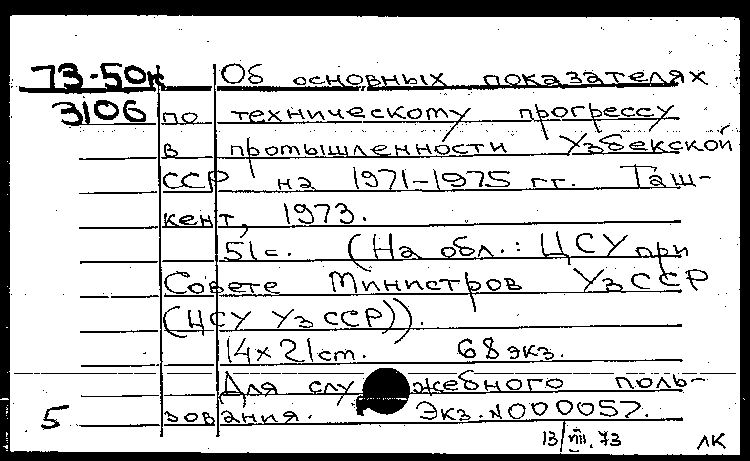 73-50к Об основных показателях
3106 по техническому прогрессу
в промышленности Узбекской
ССР на 1971-1975 гг. Таш-
кент, 1973.
51с. (На обл.: ЦСУ при
Совете Министров УзССР
(ЦСУ УзССР)).
14x21cm. 68 экз.
Для служебного поль-
5 зования. Экз. N000057.
13/VIII.73 ЛК